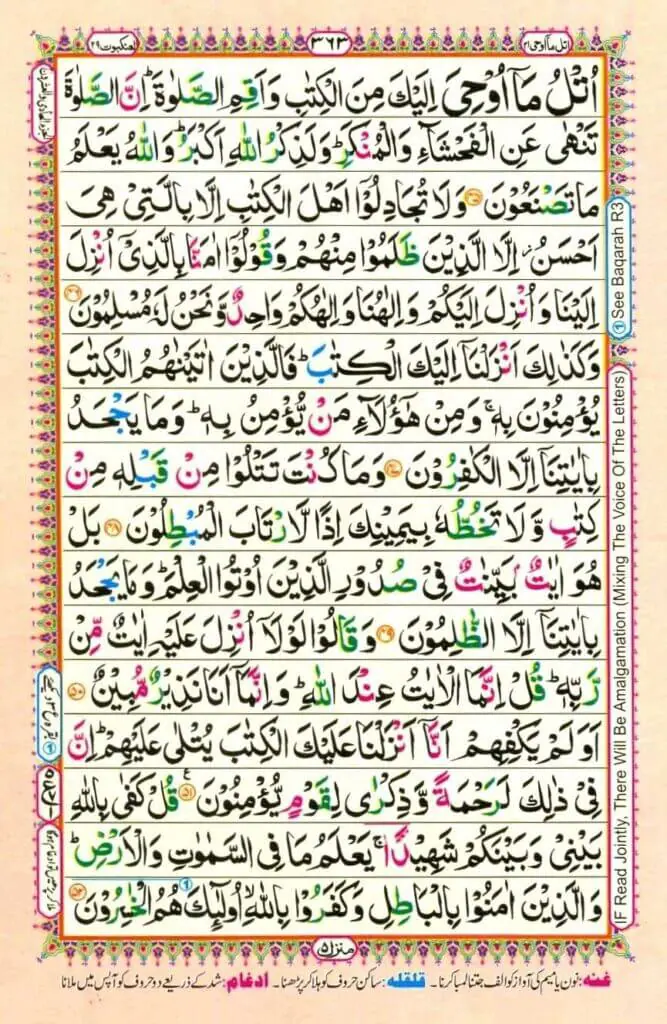 اتل مآ اوحی ۲۱
۳۶۳
العنکبوت ۲۹
اُتْلُ مَآ اُوْحِیَ اِلَیْكَ مِنَ الْكِتٰبِ وَاَقِمِ الصَّلٰوةَ ؕ اِنَّ الصَّلٰوةَ
تَنْهٰی عَنِ الْفَحْشَآءِ وَالْمُنْكَرِ ؕ وَلَذِكْرُ اللّٰهِ اَكْبَرُ ؕ وَاللّٰهُ یَعْلَمُ
مَا تَصْنَعُوْنَ ۝۴۵ وَلَا تُجَادِلُوْۤا اَهْلَ الْكِتٰبِ اِلَّا بِالَّتِیْ هِیَ
اَحْسَنُ ۖ اِلَّا الَّذِیْنَ ظَلَمُوْا مِنْهُمْ وَقُوْلُوْۤا اٰمَنَّا بِالَّذِیْۤ اُنْزِلَ
اِلَیْنَا وَاُنْزِلَ اِلَیْكُمْ وَاِلٰهُنَا وَاِلٰهُكُمْ وَاحِدٌ وَّنَحْنُ لَهٗ مُسْلِمُوْنَ ۝۴۶
وَكَذٰلِكَ اَنْزَلْنَاۤ اِلَیْكَ الْكِتٰبَ ؕ فَالَّذِیْنَ اٰتَیْنٰهُمُ الْكِتٰبَ
یُؤْمِنُوْنَ بِهٖ ۚ وَمِنْ هٰۤؤُلَآءِ مَنْ یُّؤْمِنُ بِهٖ ؕ وَمَا یَجْحَدُ
بِاٰیٰتِنَاۤ اِلَّا الْكٰفِرُوْنَ ۝۴۷ وَمَا كُنْتَ تَتْلُوْا مِنْ قَبْلِهٖ مِنْ
كِتٰبٍ وَّلَا تَخُطُّهٗ بِیَمِیْنِكَ اِذًا لَّارْتَابَ الْمُبْطِلُوْنَ ۝۴۸ بَلْ
هُوَ اٰیٰتٌۢ بَیِّنٰتٌ فِیْ صُدُوْرِ الَّذِیْنَ اُوْتُوا الْعِلْمَ ؕ وَمَا یَجْحَدُ
بِاٰیٰتِنَاۤ اِلَّا الظّٰلِمُوْنَ ۝۴۹ وَقَالُوْا لَوْلَاۤ اُنْزِلَ عَلَیْهِ اٰیٰتٌ مِّنْ
رَّبِّهٖ ؕ قُلْ اِنَّمَا الْاٰیٰتُ عِنْدَ اللّٰهِ ؕ وَاِنَّمَاۤ اَنَا نَذِیْرٌ مُّبِیْنٌ ۝۵۰
اَوَلَمْ یَكْفِهِمْ اَنَّاۤ اَنْزَلْنَا عَلَیْكَ الْكِتٰبَ یُتْلٰی عَلَیْهِمْ ؕ اِنَّ
فِیْ ذٰلِكَ لَرَحْمَةً وَّذِكْرٰی لِقَوْمٍ یُّؤْمِنُوْنَ ۝۵۱ ع قُلْ كَفٰی بِاللّٰهِ
بَیْنِیْ وَبَیْنَكُمْ شَهِیْدًا ۚ یَعْلَمُ مَا فِی السَّمٰوٰتِ وَالْاَرْضِ ؕ
وَالَّذِیْنَ اٰمَنُوْا بِالْبَاطِلِ وَكَفَرُوْا بِاللّٰهِ ۙ اُولٰٓئِكَ هُمُ الْخٰسِرُوْنَ ۝۵۲
منزل ۵
غنه: نون یا میم کی آواز کو الف جتنا لمبا کرنا۔ قلقله: ساکن حروف کو ہلا کر پڑھنا۔ ادغام: شد کے ذریعے دو حروف کو آپس میں ملانا
① See Baqarah R3
(IF Read Jointly, There Will Be Amalgamation (Mixing The Voice Of The Letters)